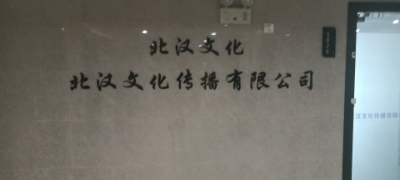 北汉文化
北汉文化传播有限公司